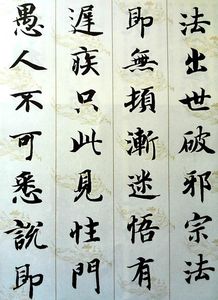 法出世破邪宗法
即無頓漸迷悟有
遲疾只此見性門
愚人不可悉說即